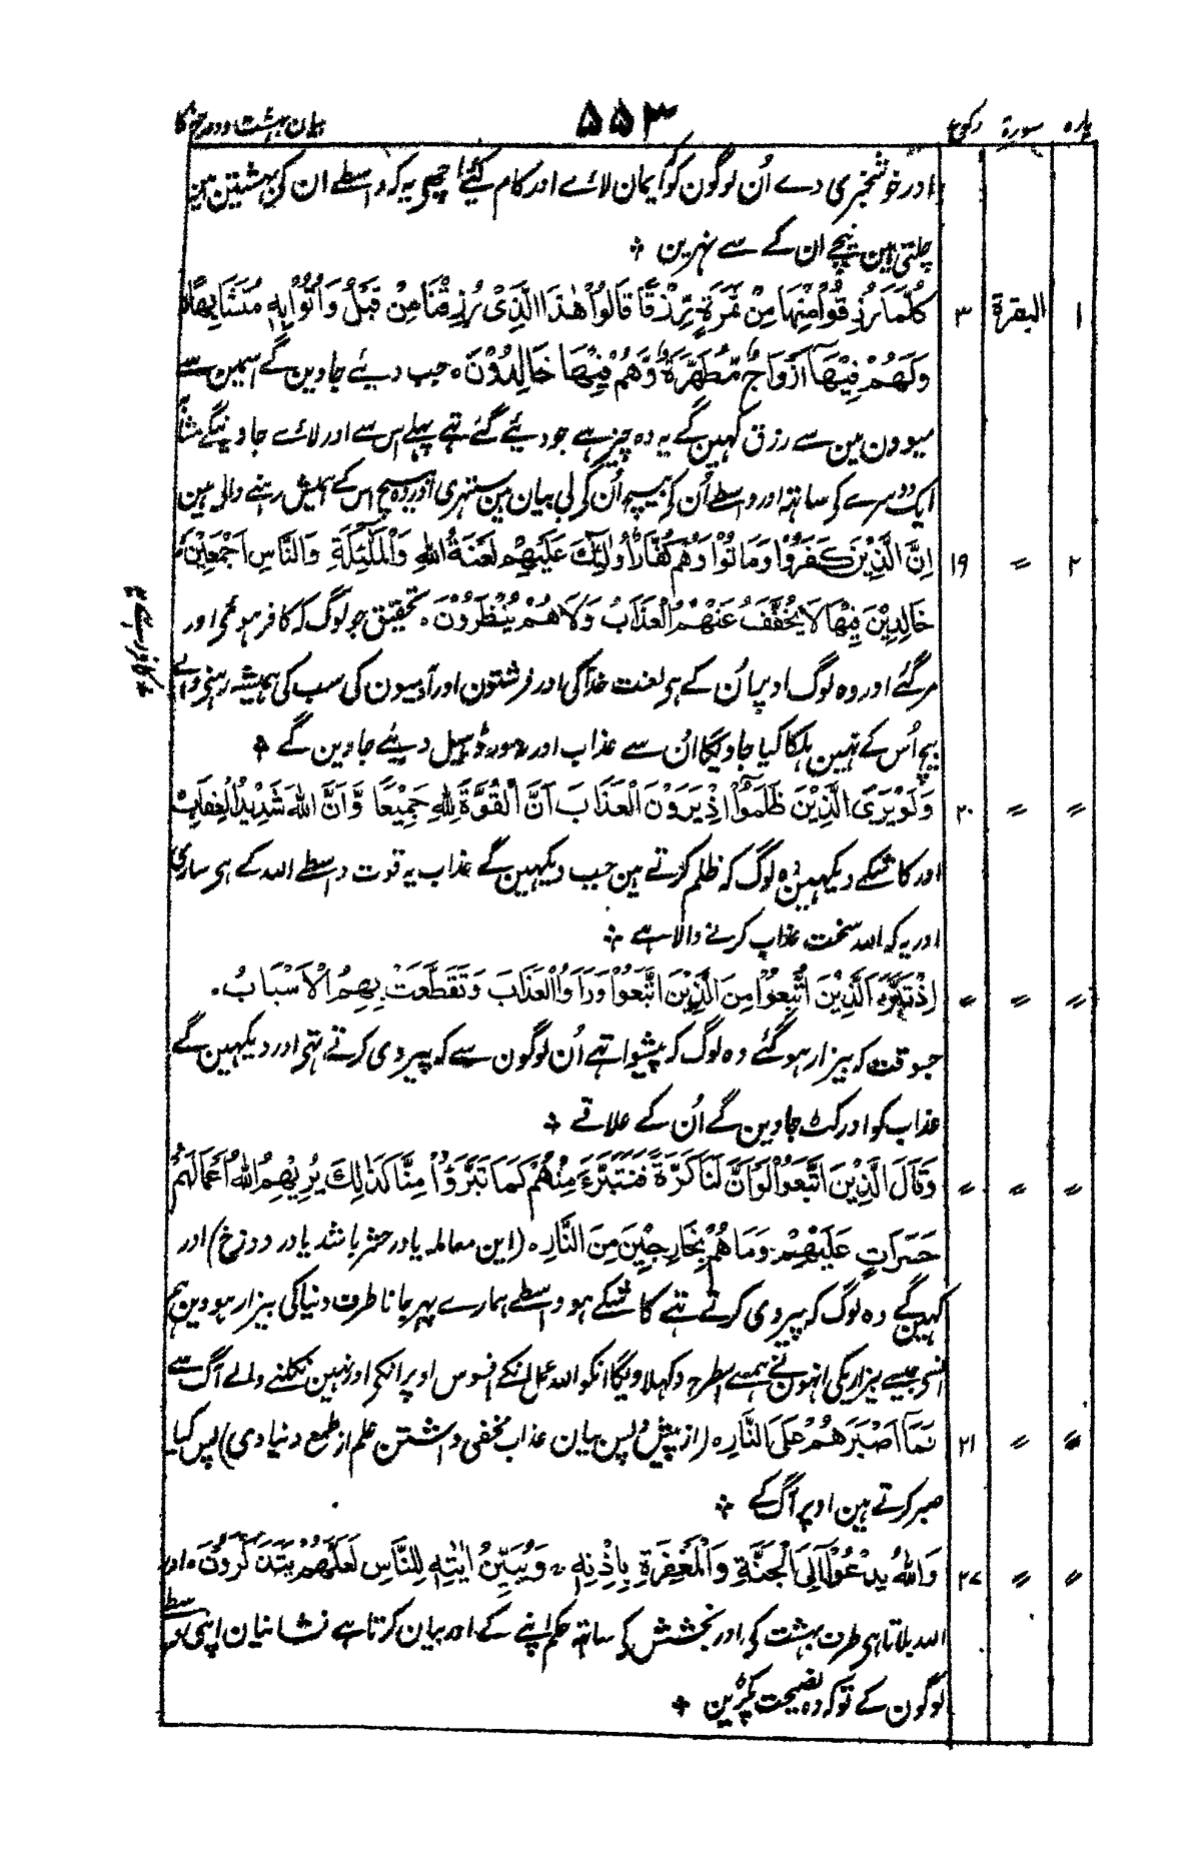 پارہ سورۃ رکوع ۵۵۳ بیان بہشت و دوزخ کا
اور خوشخبری دے اُن لوگون کو ایمان لائے اور کام کیئے اچھے یہ کہ واسطے ان کی بہشتین ہین
چلتی ہین نیچے ان کے سے نہرین ۞
۱ البقرۃ ۳ كُلَّمَا رُزِقُوْا مِنْهَا مِنْ ثَمَرَةٍ رِّزْقًا قَالُوْا هٰذَا الَّذِىْ رُزِقْنَا مِنْ قَبْلُ وَاُتُوْا بِهٖ مُتَشَابِهًا
وَلَهُمْ فِيْهَا اَزْوَاجٌ مُّطَهَّرَةٌ وَّهُمْ فِيْهَا خَالِدُوْنَ ۰ جب دیئے جاوین گے اسمین سے
میوون مین سے رزق کہین گے یہ وہ چیز ہے جو دیئے گئے تہے پہلے اس سے اور لائے جاوینگے مشابہ
ایک دوسرے کے ساتہ اور واسطے اُن کے بیچ اُن کے بی بیان ہین ستہری اور وہ بیچ اس کے ہمیش رہنے والی ہین
۲ = ۱۹ اِنَّ الَّذِيْنَ كَفَرُوْا وَمَاتُوْا وَهُمْ كُفَّارٌ اُولٰئِكَ عَلَيْهِمْ لَعْنَةُ اللهِ وَالْمَلٰئِكَةِ وَالنَّاسِ اَجْمَعِيْنَ
خَالِدِيْنَ فِيْهَا لَا يُخَفَّفُ عَنْهُمُ الْعَذَابُ وَلَا هُمْ يُنْظَرُوْنَ ۰ تحقیق جو لوگ کہ کافر ہوئے اور
مر گئے اور وہ لوگ اوپر اُن کے ہے لعنت خدا کی اور فرشتون اور آدمیون کی سب کی ہمیشہ رہنے والے
بیچ اُس کے نہین ہلکا کیا جاویگا اُن سے عذاب اور نہ وہ ڈہیل دیئے جاوین گے ۞
= = ۲۰ وَلَوْ يَرَى الَّذِيْنَ ظَلَمُوْا اِذْ يَرَوْنَ الْعَذَابَ اَنَّ الْقُوَّةَ لِلّٰهِ جَمِيْعًا وَّاَنَّ اللهَ شَدِيْدُ الْعَذَابِ
اور کاشکے دیکہین وہ لوگ کہ ظلم کرتے ہین جب دیکہین گے عذاب یہ قوت واسطے اللہ کے ہے ساری
اور یہ کہ اللہ سخت عذاب کرنے والا ہے ۞
= = = اِذْ تَبَرَّاَ الَّذِيْنَ اتُّبِعُوْا مِنَ الَّذِيْنَ اتَّبَعُوْا وَرَاَوُا الْعَذَابَ وَتَقَطَّعَتْ بِهِمُ الْاَسْبَابُ ۰
جسوقت کہ بیزار ہو گئے وہ لوگ کہ پیشوا تہے اُن لوگون سے کہ پیروی کرتے تہے اور دیکہین گے
عذاب کو اور کٹ جاوین گے اُن کے علاقے ۞
= = = وَقَالَ الَّذِيْنَ اتَّبَعُوْا لَوْ اَنَّ لَنَا كَرَّةً فَنَتَبَرَّاَ مِنْهُمْ كَمَا تَبَرَّءُوْا مِنَّا كَذٰلِكَ يُرِيْهِمُ اللهُ اَعْمَالَهُمْ
حَسَرَاتٍ عَلَيْهِمْ وَمَا هُمْ بِخَارِجِيْنَ مِنَ النَّارِ ۰ (این معاملہ یا در حشر باشد یا در دوزخ) اور
کہین گے وہ لوگ کہ پیروی کرتے تہے کاشکے ہو واسطے ہمارے پہر جانا طرف دنیا کی بیزار ہووین ہم
انسے جیسے بیزاریکی انہون نے ہمسے اسطرح دکہلاویگا انکو اللہ عمل انکے افسوس اوپر انکے اور نہین نکلنے والے آگ سے
= = ۲۱ فَمَا اَصْبَرَهُمْ عَلَى النَّارِ ۰ (از پیش و پس بیان عذاب مخفی داشتن علم از طمع دنیاوی) پس کیا
صبر کرتے ہین اوپر آگ کے ۞
= = ۲۷ وَاللهُ يَدْعُوْا اِلَى الْجَنَّةِ وَالْمَغْفِرَةِ بِاِذْنِهٖ وَيُبَيِّنُ اٰيٰتِهٖ لِلنَّاسِ لَعَلَّهُمْ يَتَذَكَّرُوْنَ ۰ اور
اللہ بلاتا ہے طرف بہشت کی اور بخشش کے ساتہ حکم اپنے کے اور بیان کرتا ہے نشانیان اپنی واسطے
لوگون کے تو کہ وہ نصیحت پکڑین ۞